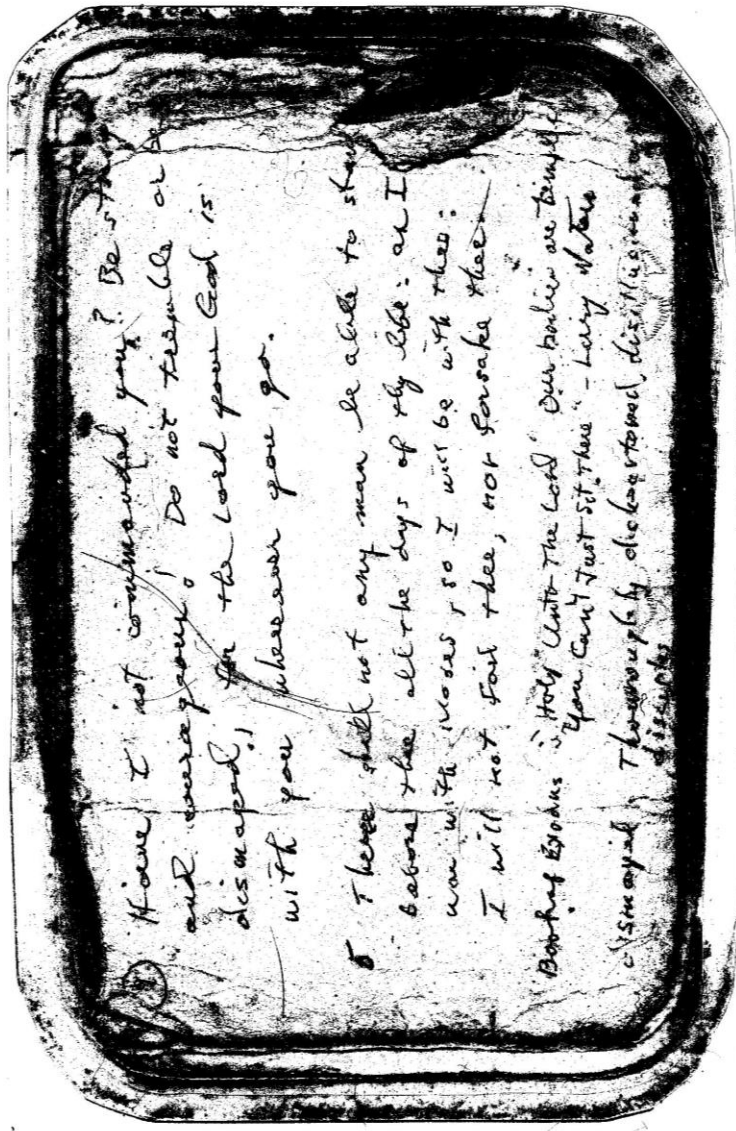 Have I not commanded you? Be strong
and courageous! Do not tremble or be
dismayed, for the Lord your God is
with you wherever you go.
5 There shall not any man be able to stand
before thee all the days of thy life: as I
was with Moses, so I will be with thee:
I will not fail thee, nor forsake thee.
Book of Exodus "Holy Unto The Lord" Our bodies are temple
"You Can't Just Sit There" - Larry
dismayed Thoroughly disheartened, disillusioned